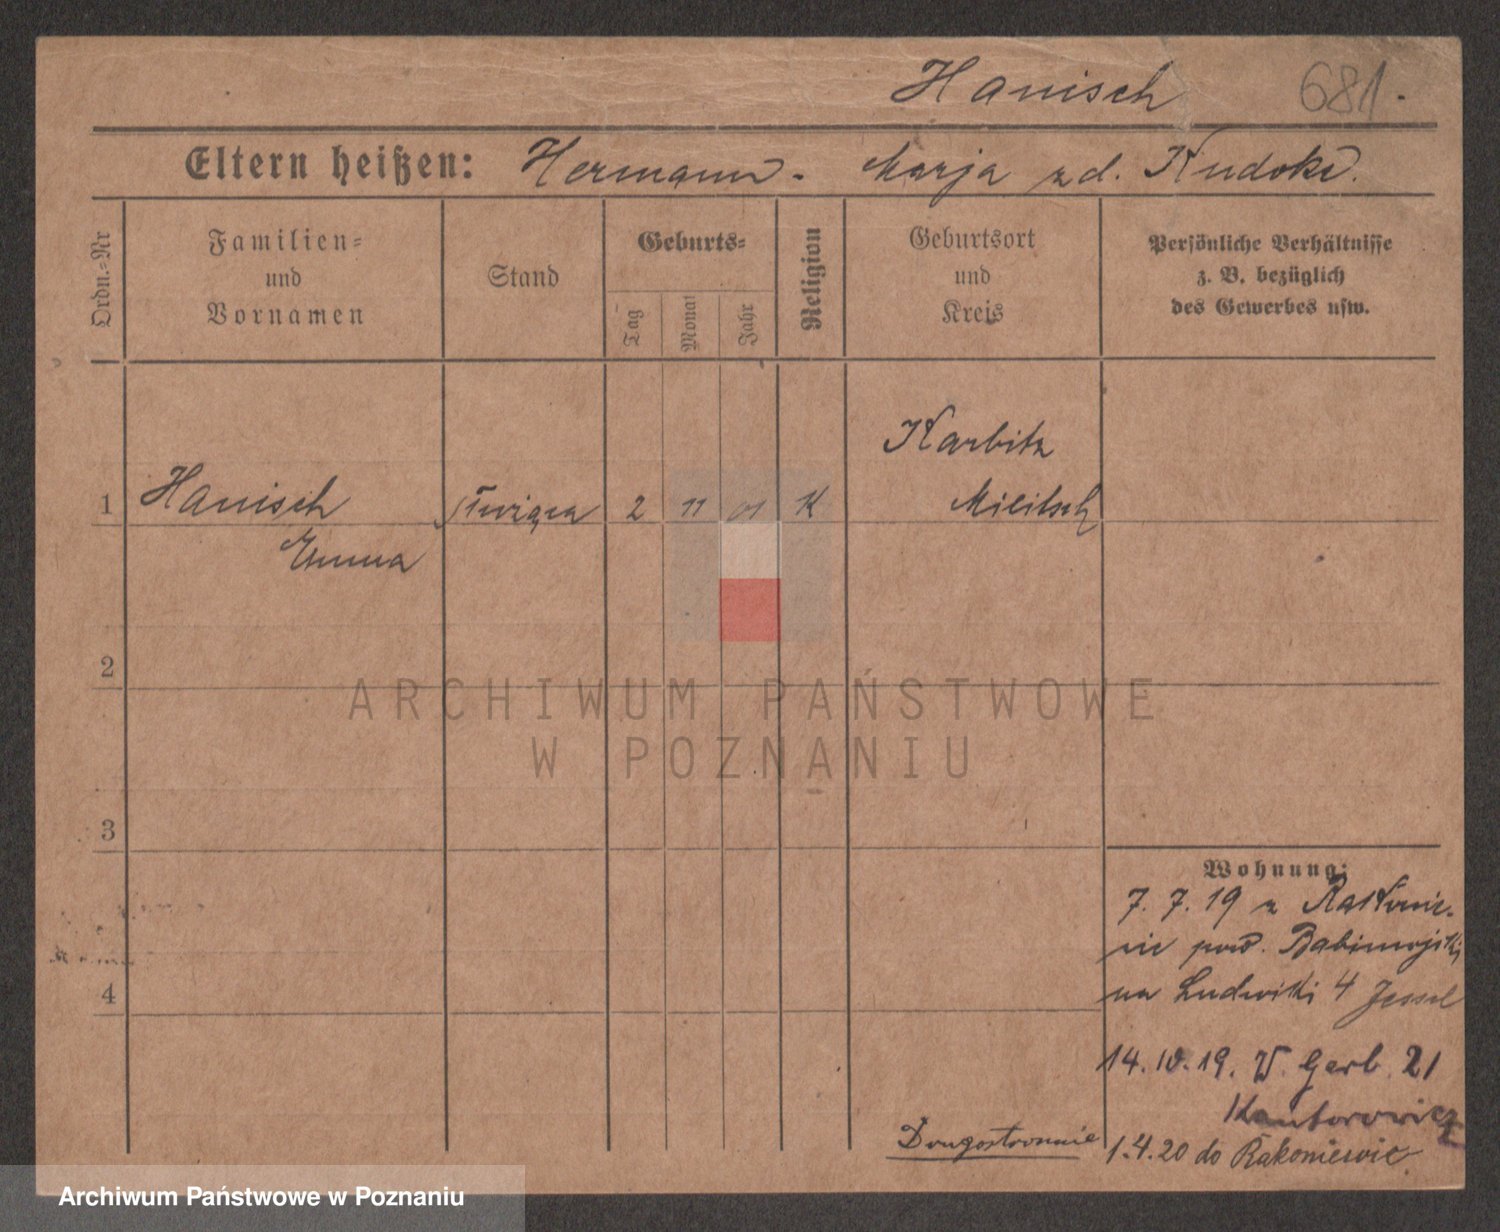 Hanisch 681.
Eltern heißen: Hermann - Marja zd. Kudoke.
Ordn.-Nr
Familien-
und
Vornamen
Stand
Geburts-
Tag
Monat
Jahr
Religion
Geburtsort
und
Kreis
Persönliche Verhältnisse
z. B. bezüglich
des Gewerbes usw.
Karbitz
1 Hanisch służąca 2 11 01 K Militsch
Emma
2
ARCHIWUM PAŃSTWOWE
W POZNANIU
3
Wohnung:
7. 7. 19 z Rakonie-
wic pow. Babimojski
4
na Ludwiki 4 Jessel
14. 10. 19. W. Gerb. 21
Kantorowicz
Drugostronnie
1.4.20 do Rakoniewic
Archiwum Państwowe w Poznaniu